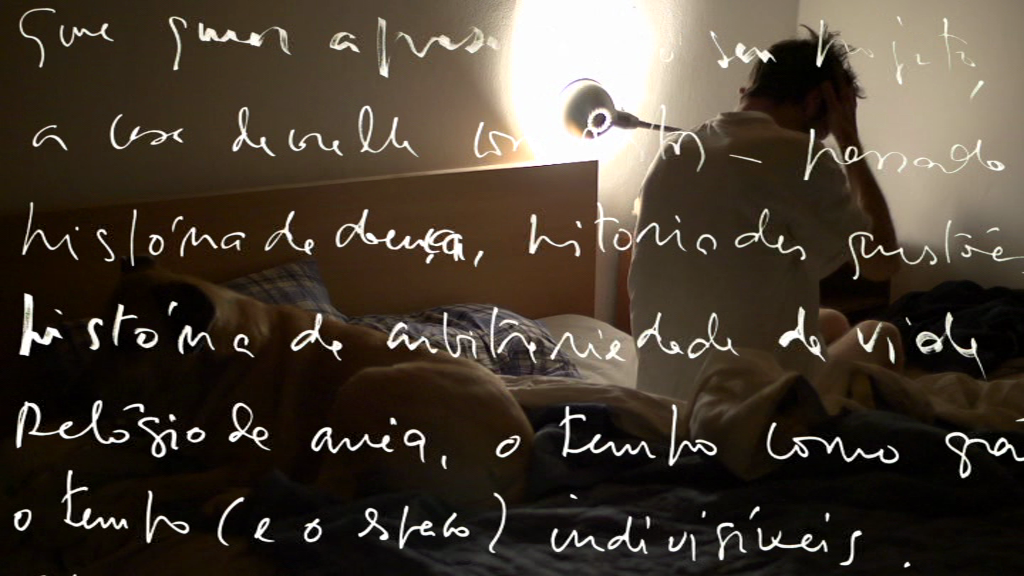 a
seu projeto,
a casa
com – passado
história de doença, história das questões
história de arbitrariedade de vida
Relógio de areia, o tempo como grã
o tempo (e o espaço) indivisíveis.